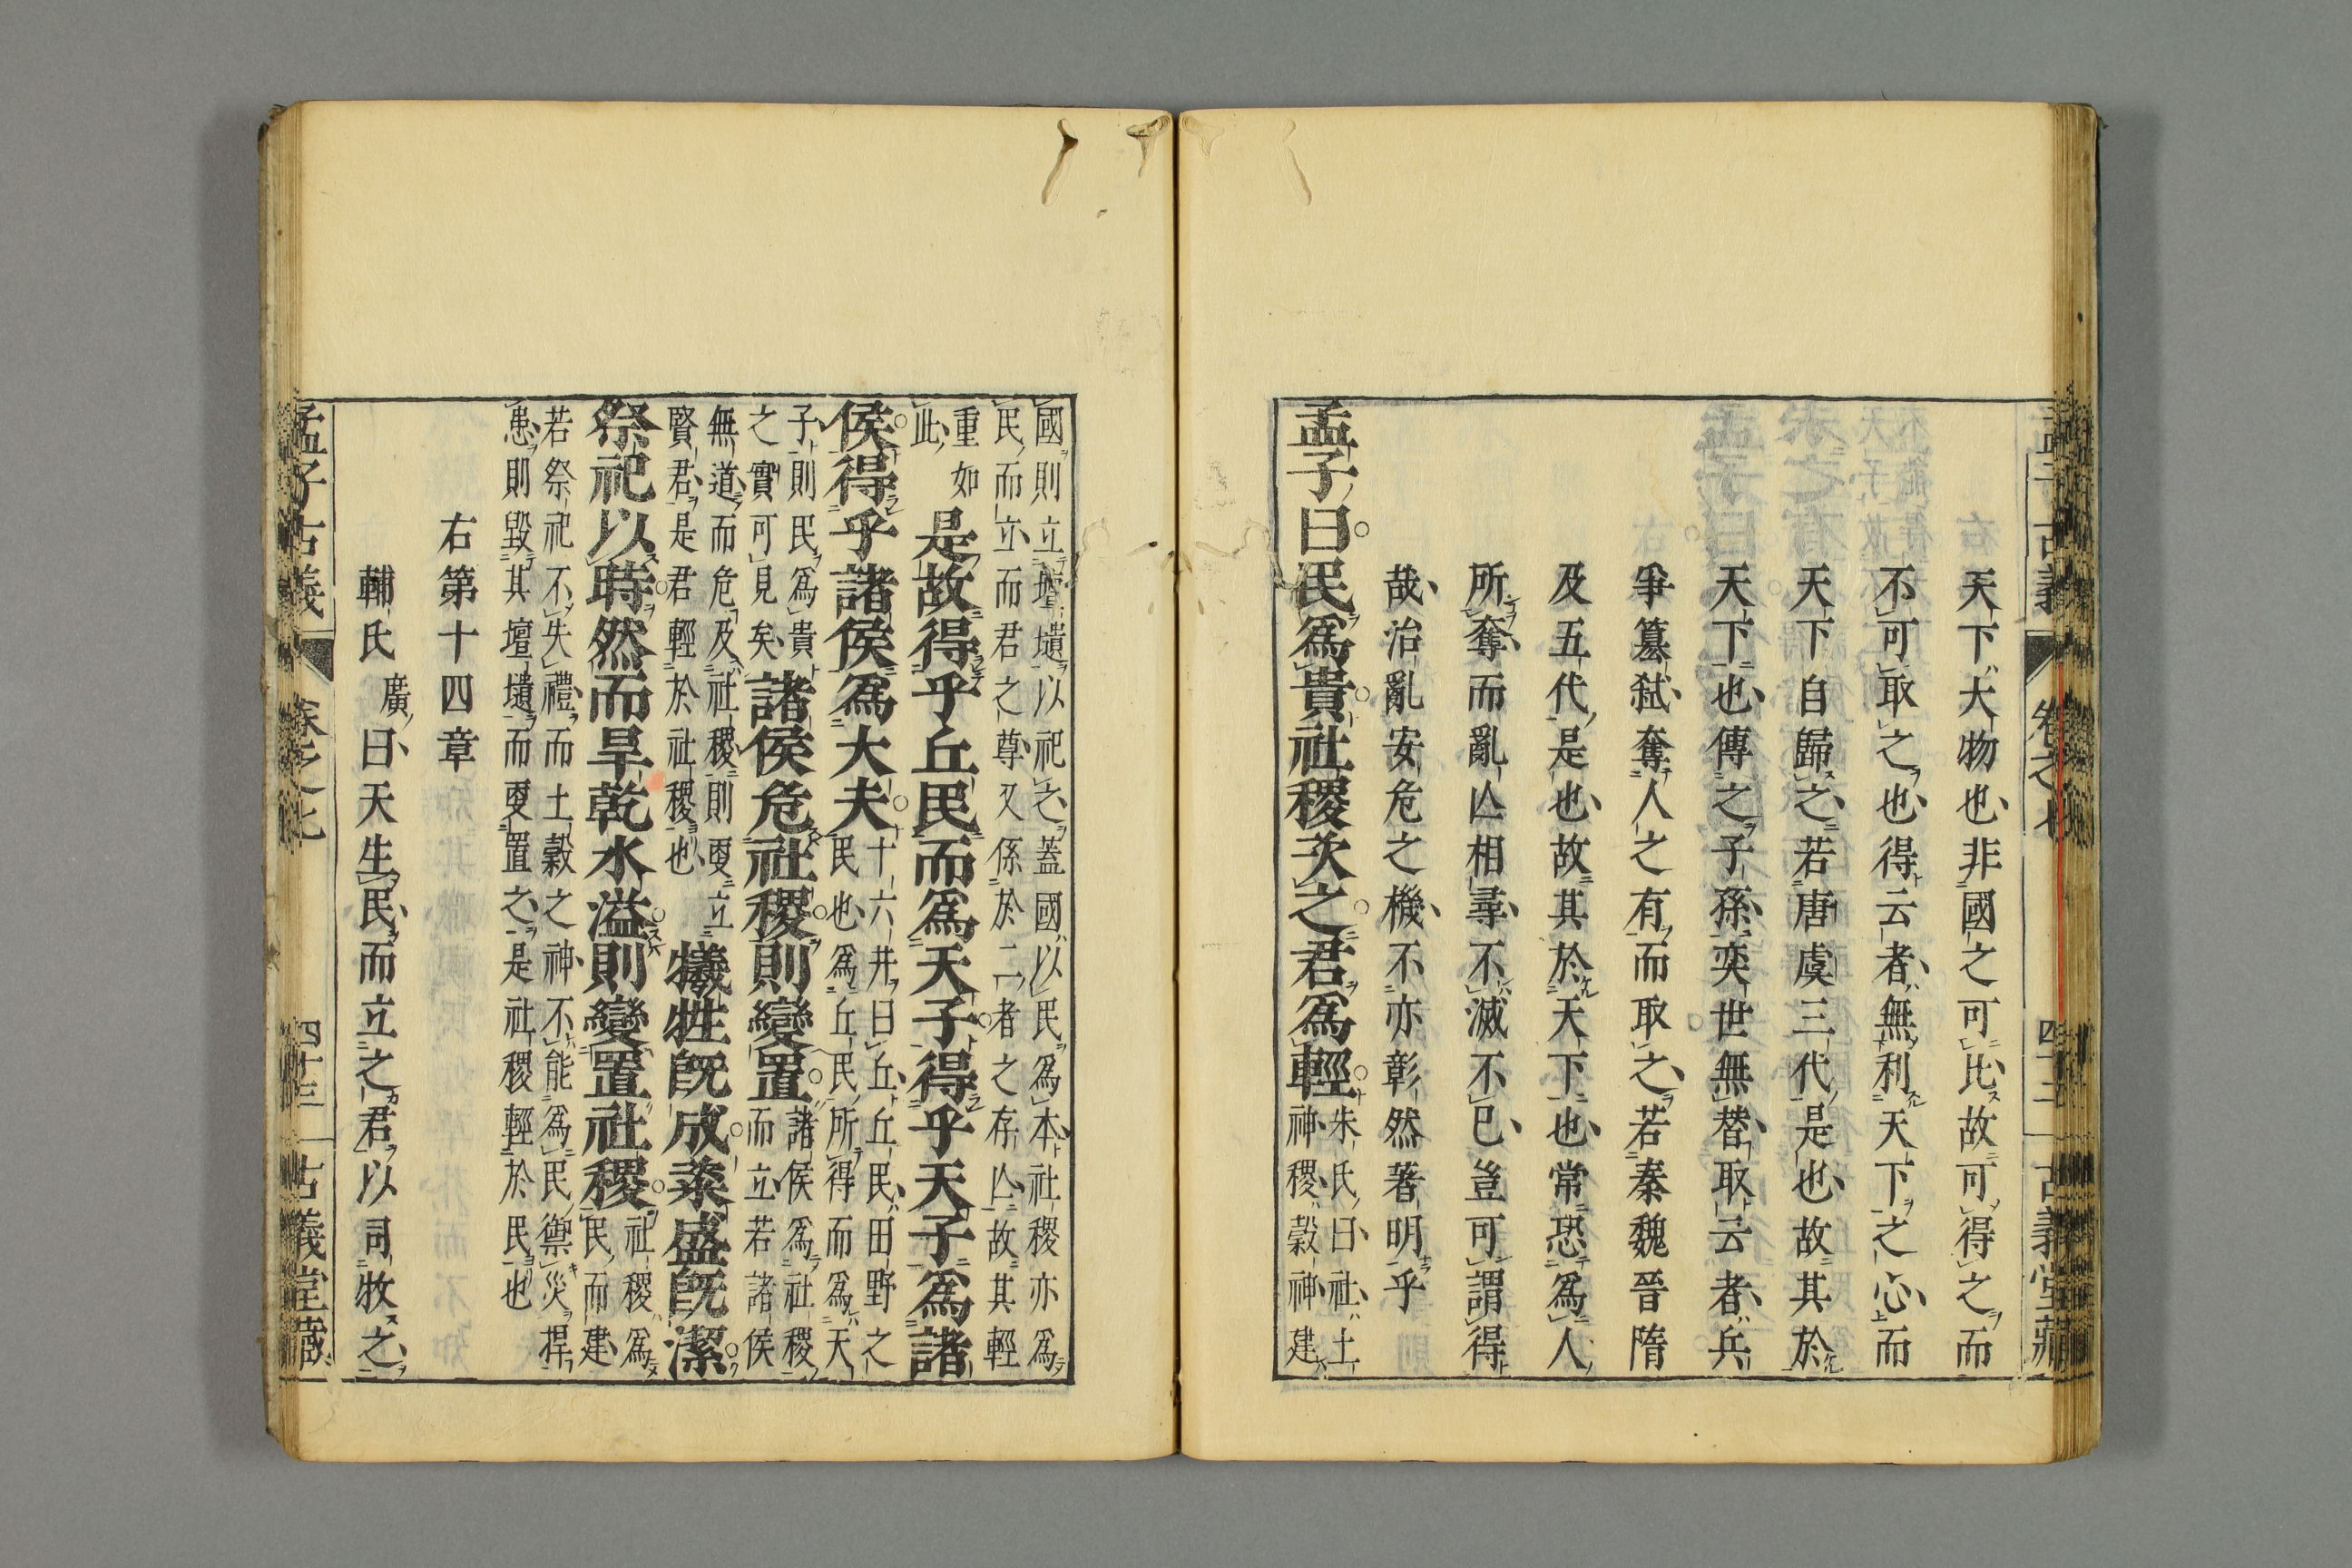 孟子古義 卷之七 四十二 古義堂藏
天下大物也非國之可比故可得之而
不可取之也得云者無利天下之心而
天下自歸之若唐虞三代是也故其於
天下也傳之子孫奕世無替取云者兵
爭簒弑奪人之有而取之若秦魏晉隋
及五代是也故其於天下也常恐爲人
所奪而亂亾相尋不滅不已豈可謂得
哉治亂安危之機不亦彰然著明乎
孟子曰民爲貴社稷次之君爲輕
朱氏曰社土
神稷穀神建
國則立壇壝以祀之蓋國以民爲本社稷亦爲
民而立而君之尊又係於二者之存亾故其輕
重如
此
是故得乎丘民而爲天子得乎天子爲諸
侯得乎諸侯爲大夫
十六井曰丘丘民田野之
民也爲丘民所得而爲天
子則民爲貴
之實可見矣
諸侯危社稷則變置
諸侯爲社稷
而立若諸侯
無道而危及社稷則更立
賢君是君輕於社稷也
犧牲旣成粢盛旣潔
祭祀以時然而旱乾水溢則變置社稷
社稷爲
民而建
若祭祀不失禮而土穀之神不能爲民禦災捍
患則毀其壇壝而更置之是社稷輕於民也
右第十四章
輔氏廣曰天生民而立之君以司牧之
孟子古義 卷之七 四十三 古義堂藏